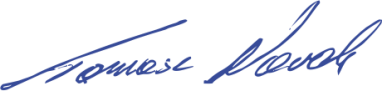 Tomasz Nowak